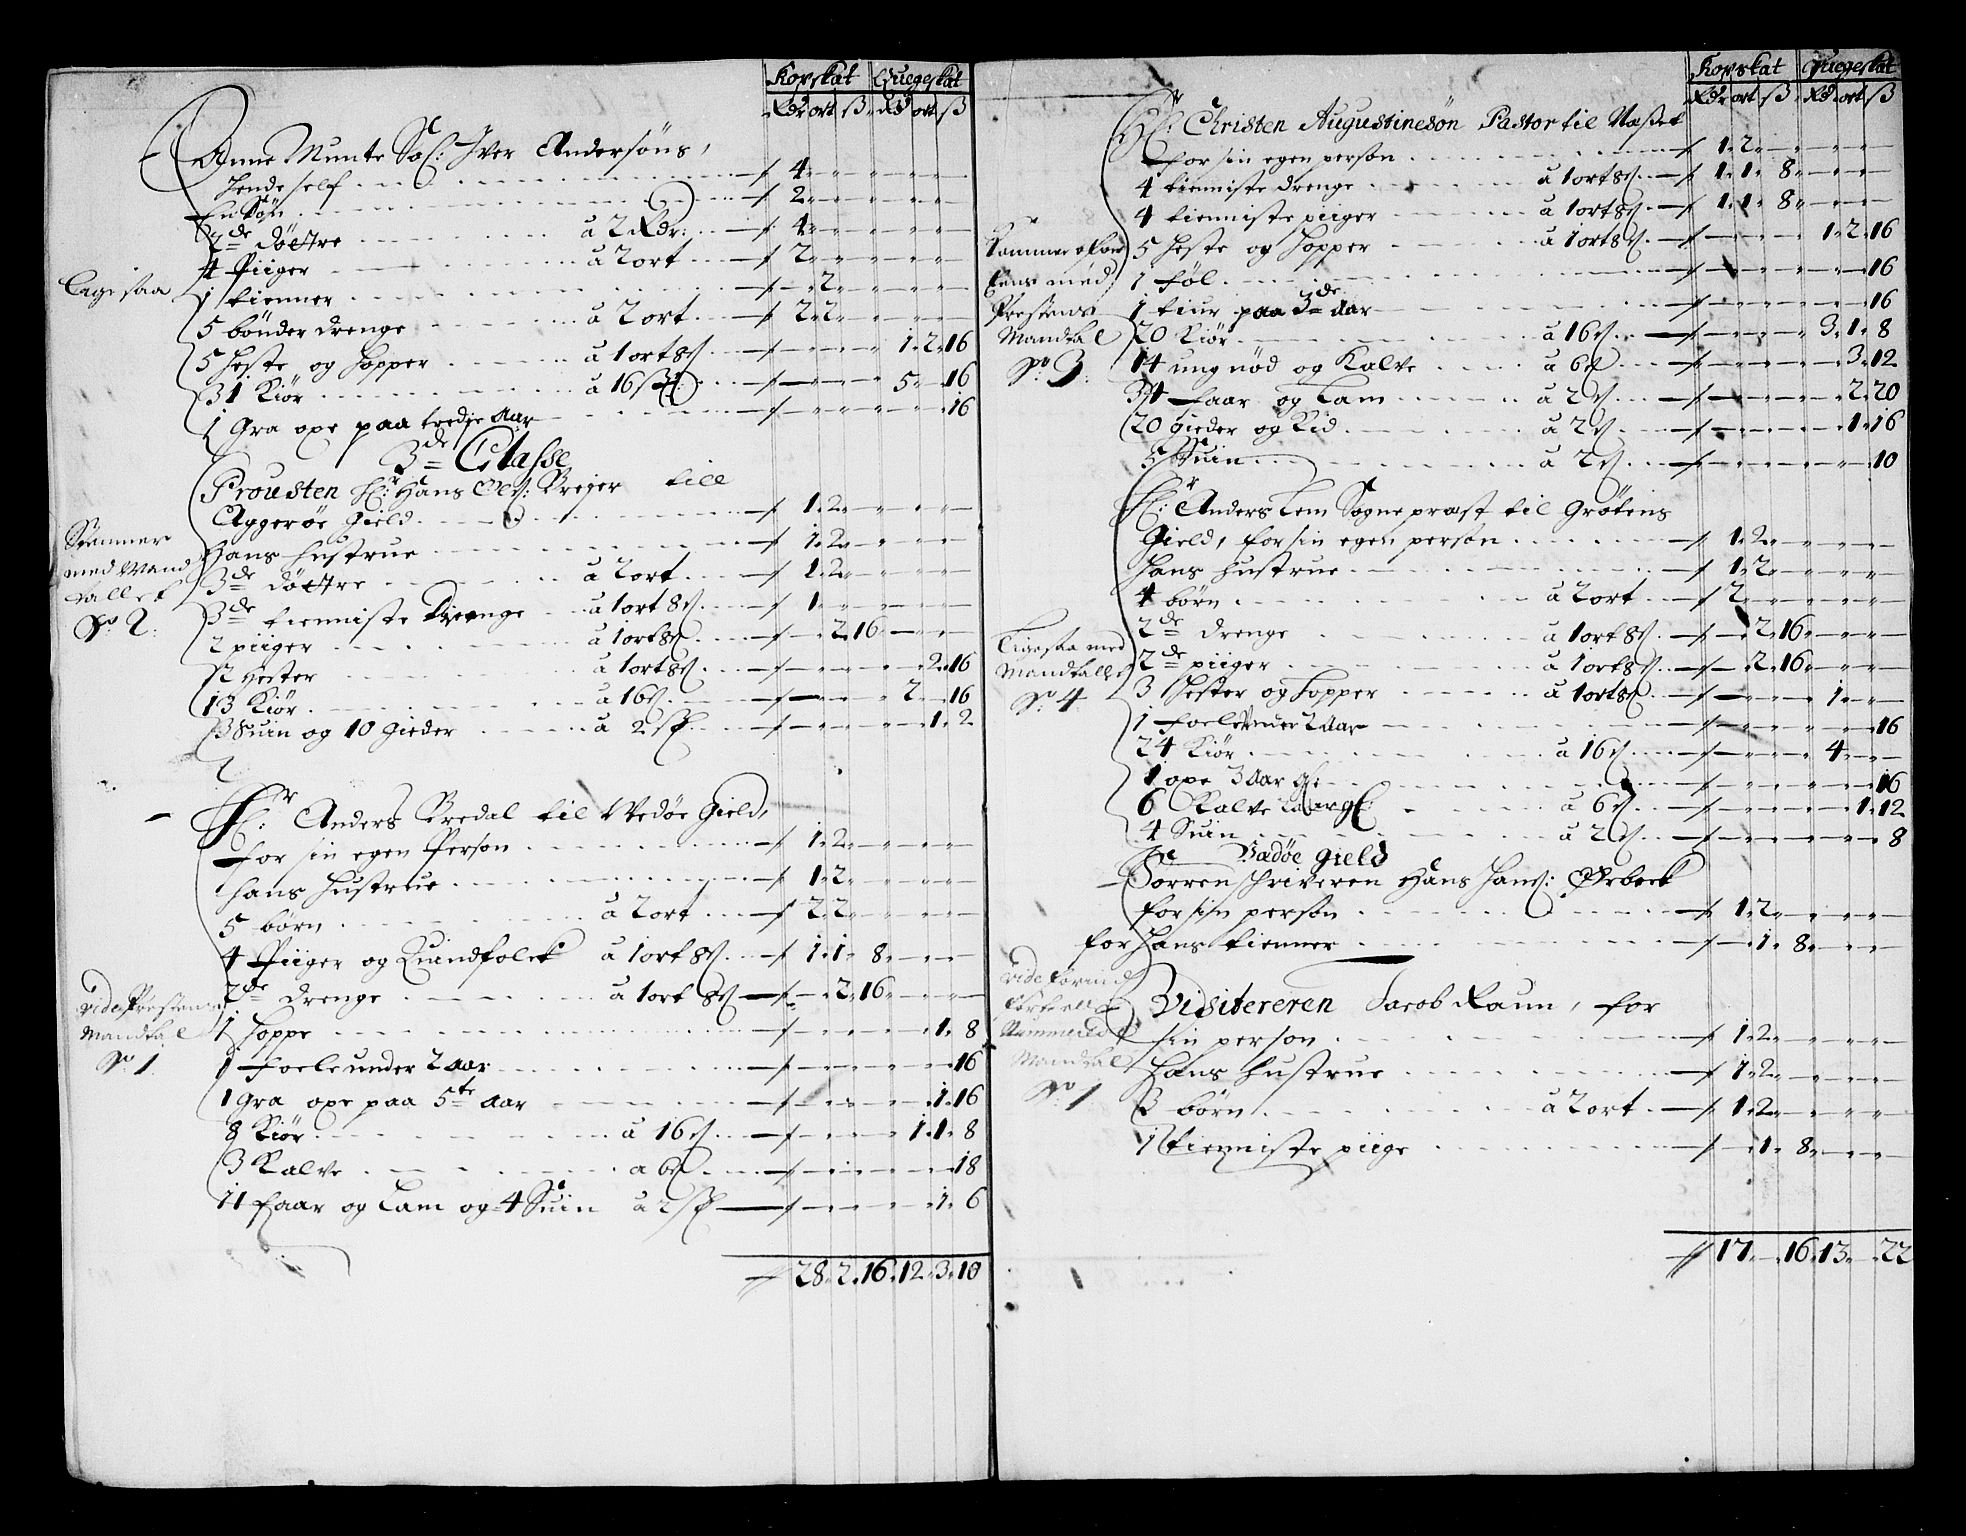 Kopskat Quegeskat
Rdr ort ß Rd ort ß
Anne Munte Sal: Iver Andersöns,
hende self 4
En Sön 2
2de döttre a 2 Rdr: 4
4 Piiger a 2 ort 2
Ligesaa
1 tienner 2
5 bönder drenge a 2 ort 2 2
5 heste og hopper a 1 ort 8 ß 1 2 16
31 Kiör a 16 ß 5 16
1 Gra oxe paa tredje Aar 16
3de Classe
Prousten Hr: Hans Ols: Kreyer till
Aggeröe Gield 1 2
Stemmer
med Mand
tallet
No 2
Hans hustrue 1 2
3de döttre a 2 ort 1 2
3de tienniste drenge a 1 ort 8 ß 1
2 piiger a 1 ort 8 ß 2 16
2 Hester a 1 ort 8 ß 2 16
13 Kiör a 16 ß 2 16
3 Suin og 10 Gieder a 2 ß 1 2
Hr: Anders Bredal til Wedöe Gield,
for sin egen Person 1 2
hans hustrue 1 2
5 börn a 2 ort 2 2
4 Piiger og Quindfolck a 1 ort 8 ß 1 1 8
vide Prestens
Mandtal
No 1
2de drenge a 1 ort 8 ß 2 16
1 hoppe 1 8
1 foele under 2 aar 16
1 Gra oxe paa 5te aar 1 16
8 Kiör a 16 ß 1 1 8
3 Kalve a 6 ß 18
11 faar og Lam og 4 Suin a 2 ß 1 6
28 2 16 12 3 10
Kopskat Quegeskat
Rdr ort ß Rd ort ß
Hr: Christen Augustinesön Pastor til Næsset
for sin egen person 1 2
4 tienniste drenge a 1 ort 8 ß 1 1 8
4 tienniste piiger a 1 ort 8 ß 1 1 8
5 heste og hopper a 1 ort 8 ß 1 2 16
med
Prestens
Mandtal
No 3
1 föl 16
1 tiur paa 3de Aar 16
20 Kiör a 16 ß 3 1 8
14 ung nöd og Kalve a 6 ß 3 12
34 faar og Lam a 2 ß 2 20
20 gieder og Kid a 2 ß 1 16
5 Suin a 2 ß 10
Hr: Anders Lem Sogneprast til Grötens
Gield, for sin egen person 1 2
hans hustrue 1 2
4 börn a 2 ort 2
2de drenge a 1 ort 8 ß 2 16
Ligesaa med
Mandtallet
No 4
2de piiger a 1 ort 8 ß 2 16
3 hester og hopper a 1 ort 8 ß 1
1 foele under 2 Aar 16
24 Kiör a 16 ß 4
1 oxe 3 Aar gl: 16
6 Kalve 1 aar gl: a 6 ß 1 12
4 Suin a 2 ß 8
Bodöe Gield
Sorrenschriveren Hans Hans: Ørbeck
for sin person 1 2
for hans tienner 1 8
vide
Mandtal
No 1
Visitereren Jacob Raun, for
sin person 1 2
hans hustrue 1 2
3 börn a 2 ort 1 2
1 tienniste piige 1 8
17 16 13 22